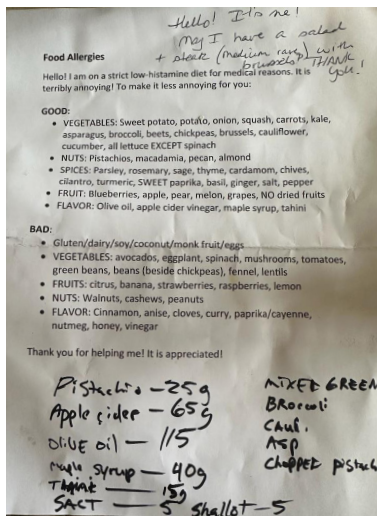 Hello! It's me!
may I have a salad
+ steak (medium rare) with
brussels? THANK
you!
Food Allergies
Hello! I am on a strict low-histamine diet for medical reasons. It is
terribly annoying! To make it less annoying for you:
GOOD:
• VEGETABLES: Sweet potato, potato, onion, squash, carrots, kale,
asparagus, broccoli, beets, chickpeas, brussels, cauliflower,
cucumber, all lettuce EXCEPT spinach
• NUTS: Pistachios, macadamia, pecan, almond
• SPICES: Parsley, rosemary, sage, thyme, cardamom, chives,
cilantro, turmeric, SWEET paprika, basil, ginger, salt, pepper
• FRUIT: Blueberries, apple, pear, melon, grapes, NO dried fruits
• FLAVOR: Olive oil, apple cider vinegar, maple syrup, tahini
BAD:
• Gluten/dairy/soy/coconut/monk fruit/eggs
• VEGETABLES: avocados, eggplant, spinach, mushrooms, tomatoes,
green beans, beans (beside chickpeas), fennel, lentils
• FRUITS: citrus, banana, strawberries, raspberries, lemon
• NUTS: Walnuts, cashews, peanuts
• FLAVOR: Cinnamon, anise, cloves, curry, paprika/cayenne,
nutmeg, honey, vinegar
Thank you for helping me! It is appreciated!
Pistachio - 25g
Apple cider - 65g
Olive oil - 115
maple syrup - 40g
15g
SALT 5 Shallot - 5
MIXED GREEN
BRoccoli
CAUI.
ASP
Chopped pistach